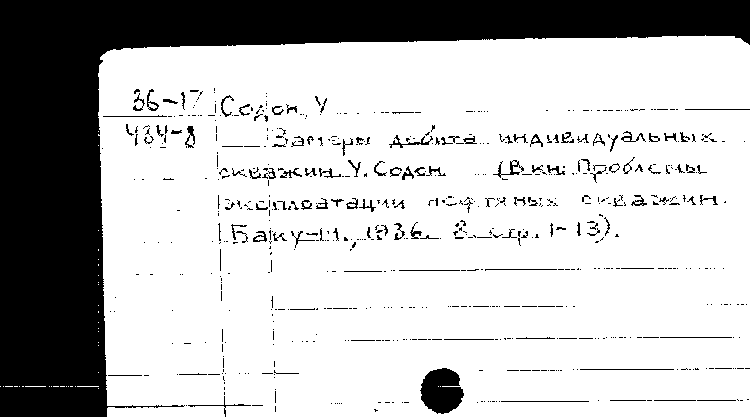 36-17 Содон, У
434-8 Замеры дебита индивидуальных
скважин У. Содон (В кн: Проблемы
эксплоатации нефтяных скважин.
Баку-М., 1936. 8. стр. 1-13).